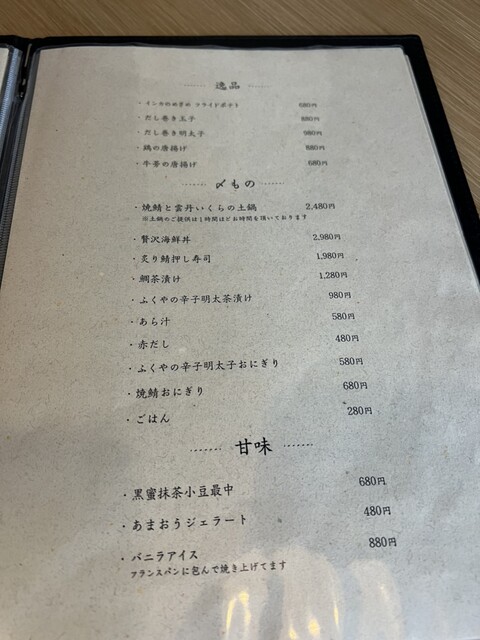 逸品
・インカのめざめ フライドポテト 680円
・だし巻き玉子 880円
・だし巻き明太子 980円
・鶏の唐揚げ 880円
・牛蒡の唐揚げ 680円
〆もの
・焼鯖と雲丹いくらの土鍋 2,480円
※土鍋のご提供は1時間ほどお時間を頂いております
・贅沢海鮮丼 2,980円
・炙り鯖押し寿司 1,980円
・鯛茶漬け 1,280円
・ふくやの辛子明太茶漬け 980円
・あら汁 580円
・赤だし 480円
・ふくやの辛子明太子おにぎり 580円
・焼鯖おにぎり 680円
・ごはん 280円
甘味
・黒蜜抹茶小豆最中 680円
・あまおうジェラート 480円
・バニラアイス 880円
フランスパンに包んで焼き上げてます